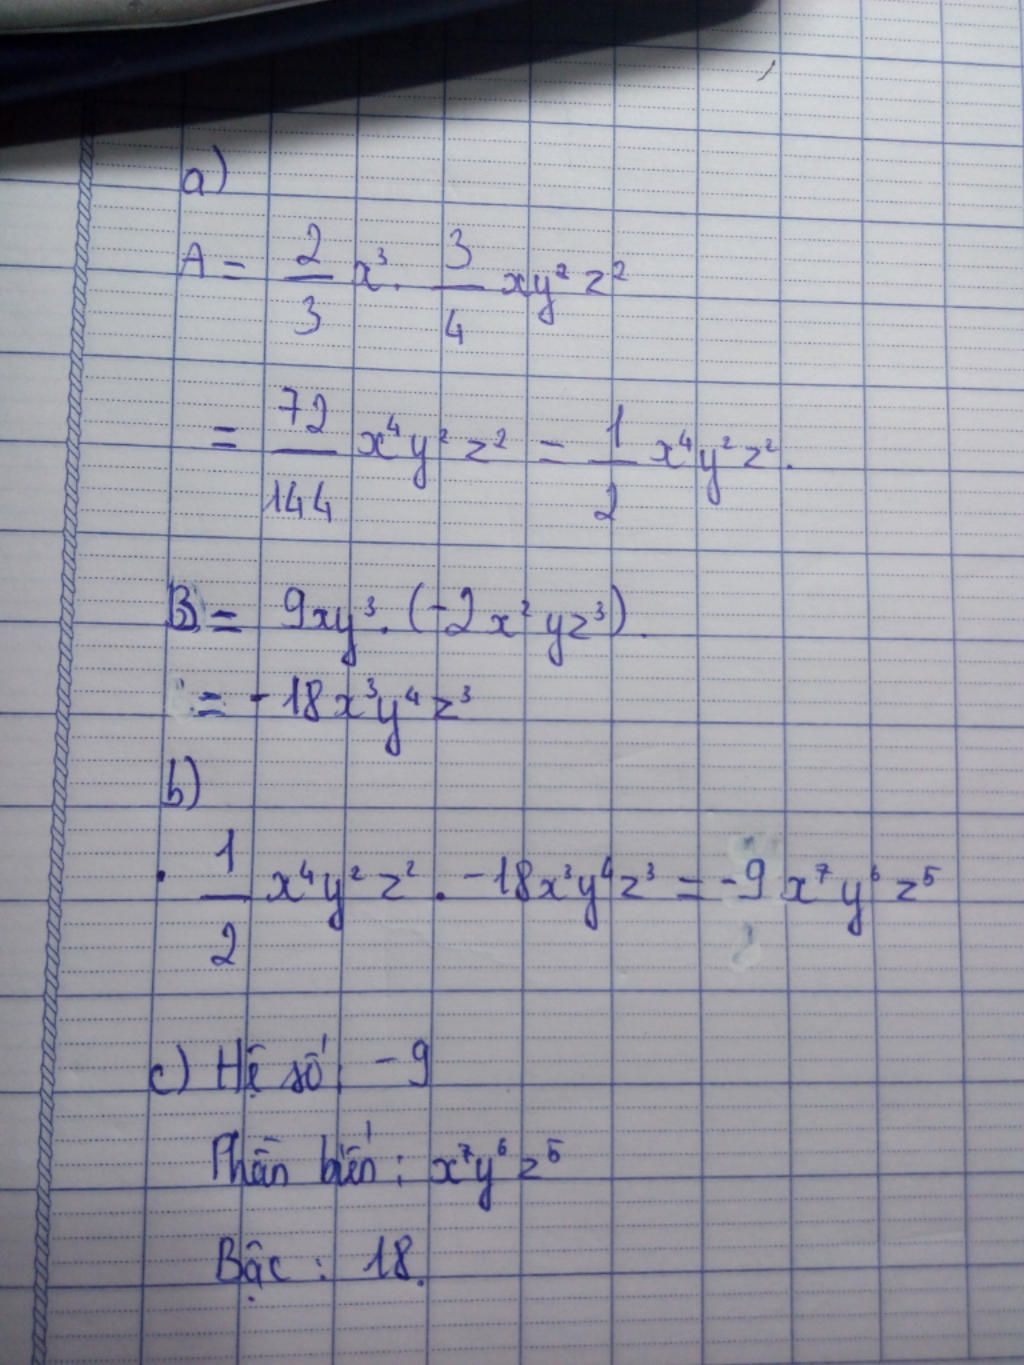 a)
A = 2/3 x³. 3/4 xy² z²
= 72/144 x⁴y² z² = 1/2 x⁴y² z².
B = 9xy³. (-2x² yz³).
= -18x³y⁴z³
b)
• 1/2 x⁴y² z² . -18x³y⁴z³ = -9 x⁷ y⁶ z⁵
c) Hệ số: -9
Phần biến: x⁷y⁶ z⁵
Bậc : 18.